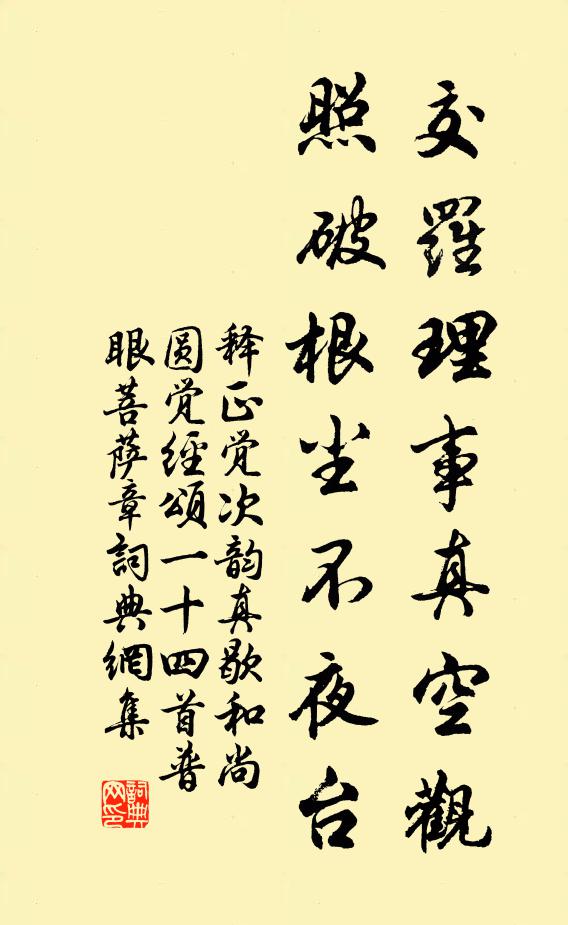 交羅理事真空觀
照破根尘不夜台
释正觉次韵真歇和尚
圆觉經頌一十四首普
眼菩萨章詞典網集
詞典
网印